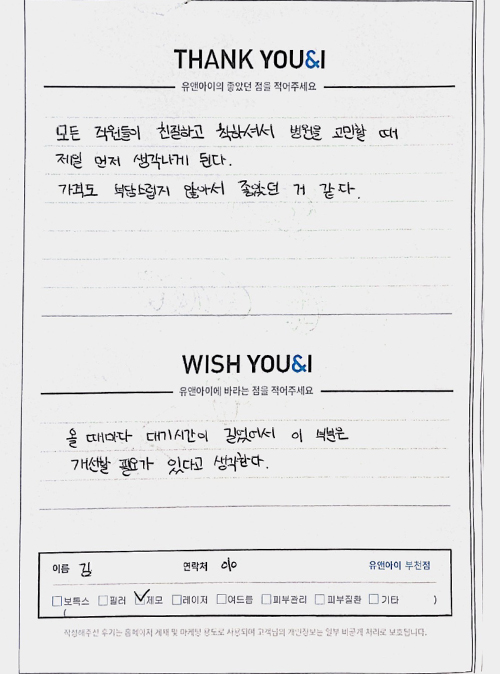 THANK YOU&I
유앤아이의 좋았던 점을 적어주세요
모든 직원들이 친절하고 착하셔서 병원을 고민할 때
제일 먼저 생각나게 된다.
가격도 부담스럽지 않아서 좋았던 거 같다.
WISH YOU&I
유앤아이에 바라는 점을 적어주세요
올 때마다 대기시간이 길었어서 이 부분은
개선할 필요가 있다고 생각한다.
이름 김 연락처 010 유앤아이 부천점
보톡스 필러 제모 레이저 여드름 피부관리 피부질환 기타 )
(
작성해주신 후기는 홈페이지 게재 및 마케팅 용도로 사용되며 고객님의 개인정보는 일부 비공개 처리로 보호됩니다.